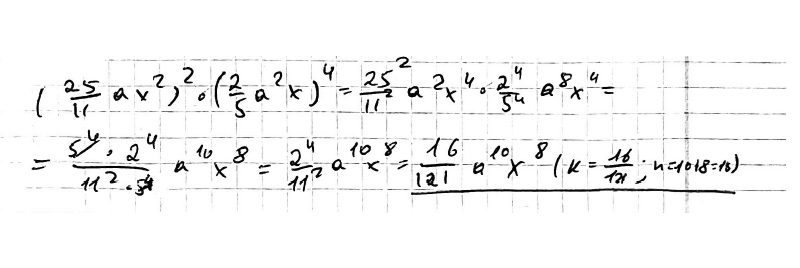 (25/11 ax²)² · (2/5 a²x)⁴ = 25²/11² a²x⁴ · 2⁴/5⁴ a⁸x⁴ =
= 5⁴ · 2⁴/11² · 5⁴ a¹⁰x⁸ = 2⁴/11² a¹⁰x⁸ = 16/121 a¹⁰x⁸ (k = 16/121; n=10+8=18)